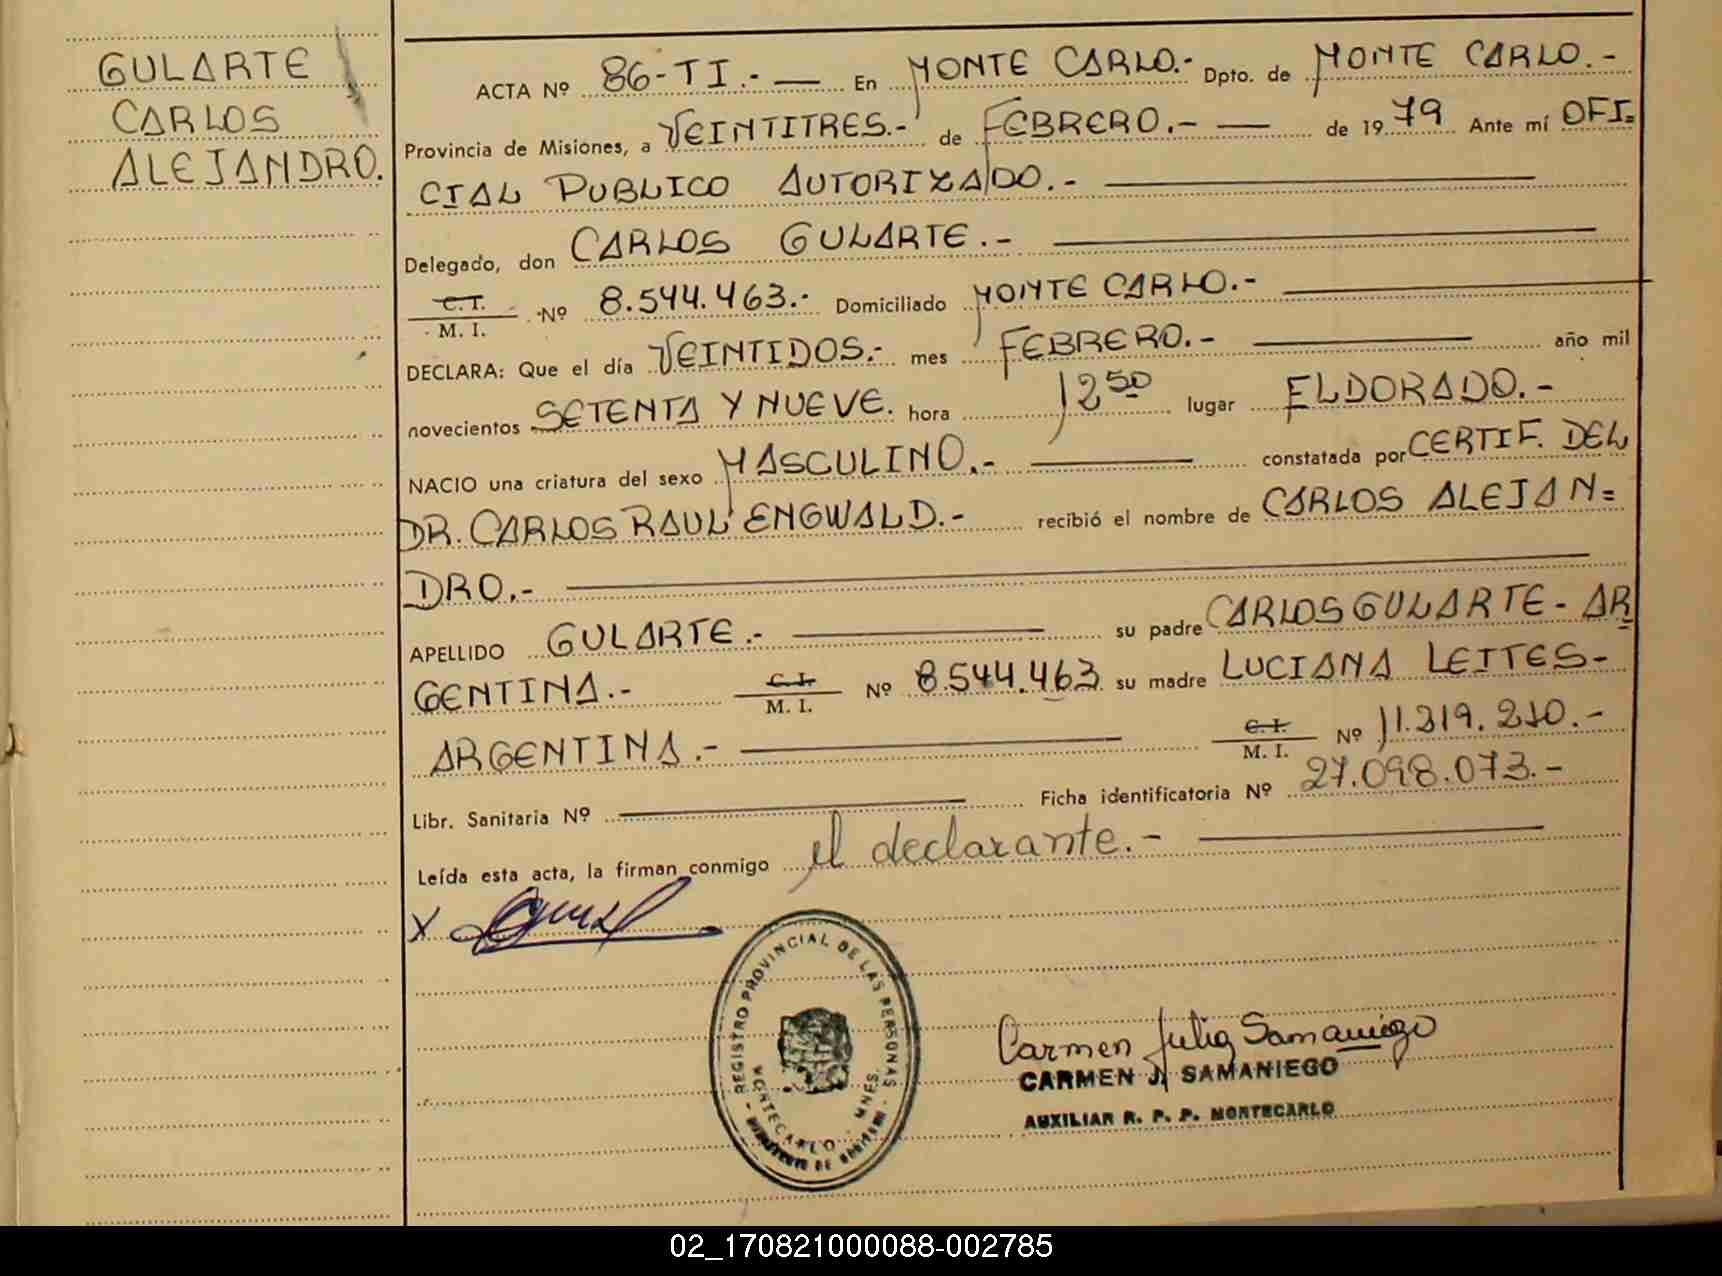 GULARTE
CARLOS
ALEJANDRO.
ACTA Nº 86-TI.- En MONTE CARLO.- Dpto. de MONTE CARLO.-
Provincia de Misiones, a VEINTITRES.- de FEBRERO.- de 1979 Ante mí OFI=
CIAL PUBLICO AUTORIZADO.-
Delegado, don CARLOS GULARTE.-
C.I.
M. I. Nº 8.544.463.- Domiciliado MONTE CARLO.-
DECLARA: Que el día VEINTIDOS.- mes FEBRERO.- año mil
novecientos SETENTA Y NUEVE. hora 12 50 lugar ELDORADO.-
NACIO una criatura del sexo MASCULINO.- constatada por CERTIF. DEL
DR. CARLOS RAUL ENGWALD.- recibió el nombre de CARLOS ALEJAN=
DRO.-
APELLIDO GULARTE.- su padre CARLOS GULARTE - AR
GENTINA.- C.I. M. I. Nº 8.544.463 su madre LUCIANA LEITES-
ARGENTINA.- C.I. M. I. Nº 11.319.210.-
Libr. Sanitaria Nº Ficha identificatoria Nº 27.098.073.-
Leída esta acta, la firman conmigo el declarante.-
X
REGISTRO PROVINCIAL DE LAS PERSONAS
MONTECARLO - MNES.
Carmen Julia Samaniego
CARMEN J. SAMANIEGO
AUXILIAR R. P. P. MONTECARLO
02_170821000088-002785